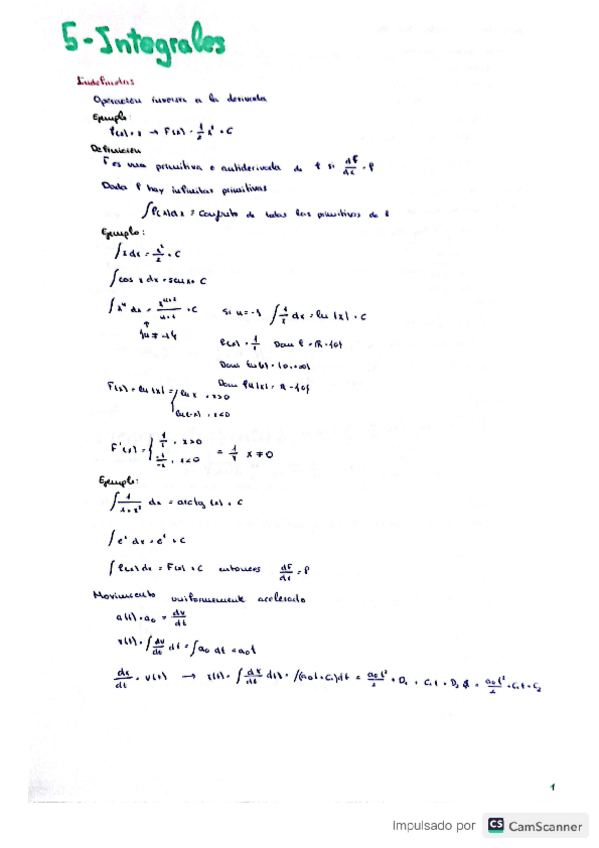 5-Integrales
Indefinidas
Operación inversa a la derivada
Ejemplo:
f(x) = x → F(x) = 1/2 x² + C
Definición
F es una primitiva o antiderivada de f si dF/dx = f
Dada f hay infinitas primitivas
∫f(x)dx = conjunto de todas las primitivas de f
Ejemplo:
∫x dx = x²/2 + C
∫cos x dx = sen x + C
∫xⁿ dx = xⁿ⁺¹/n+1 + C si n = -1 ∫1/x dx = ln |x| + C
↑
{n ≠ -1}
f(x) = 1/x Dom f = R - {0}
Dom ln(x) = (0, +∞)
Dom ln|x| = R - {0}
F(x) = ln |x| = { ln x , x>0
ln(-x) , x<0
F'(x) = { 1/x , x>0
-1/-x , x<0 = 1/x x ≠ 0
Ejemplo:
∫1/1+x² dx = arctg (x) + C
∫eˣ dx = eˣ + C
∫f(x) dx = F(x) + C entonces dF/dx = f
Movimiento uniformemente acelerado
a(t) = a₀ = dv/dt
v(t) = ∫dv/dt dt = ∫a₀ dt = a₀t
dx/dt = v(t) → x(t) = ∫dx/dt d(t) = ∫(a₀t + C₁)dt = a₀t²/2 + D₁ + C₁t + D₂ = a₀t²/2 + C₁t + C₂
1
Impulsado por CS CamScanner